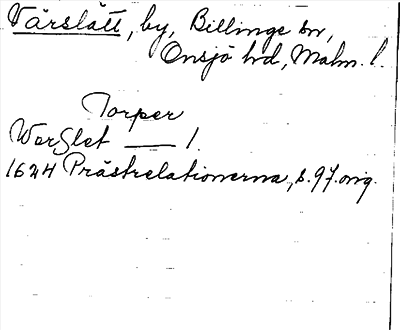 Värslätt, by, Billinge sn,
Onsjö hd, Malm. l.
Torper
Werslet — 1.
1624 Prästrelationerna, s. 97. orig.